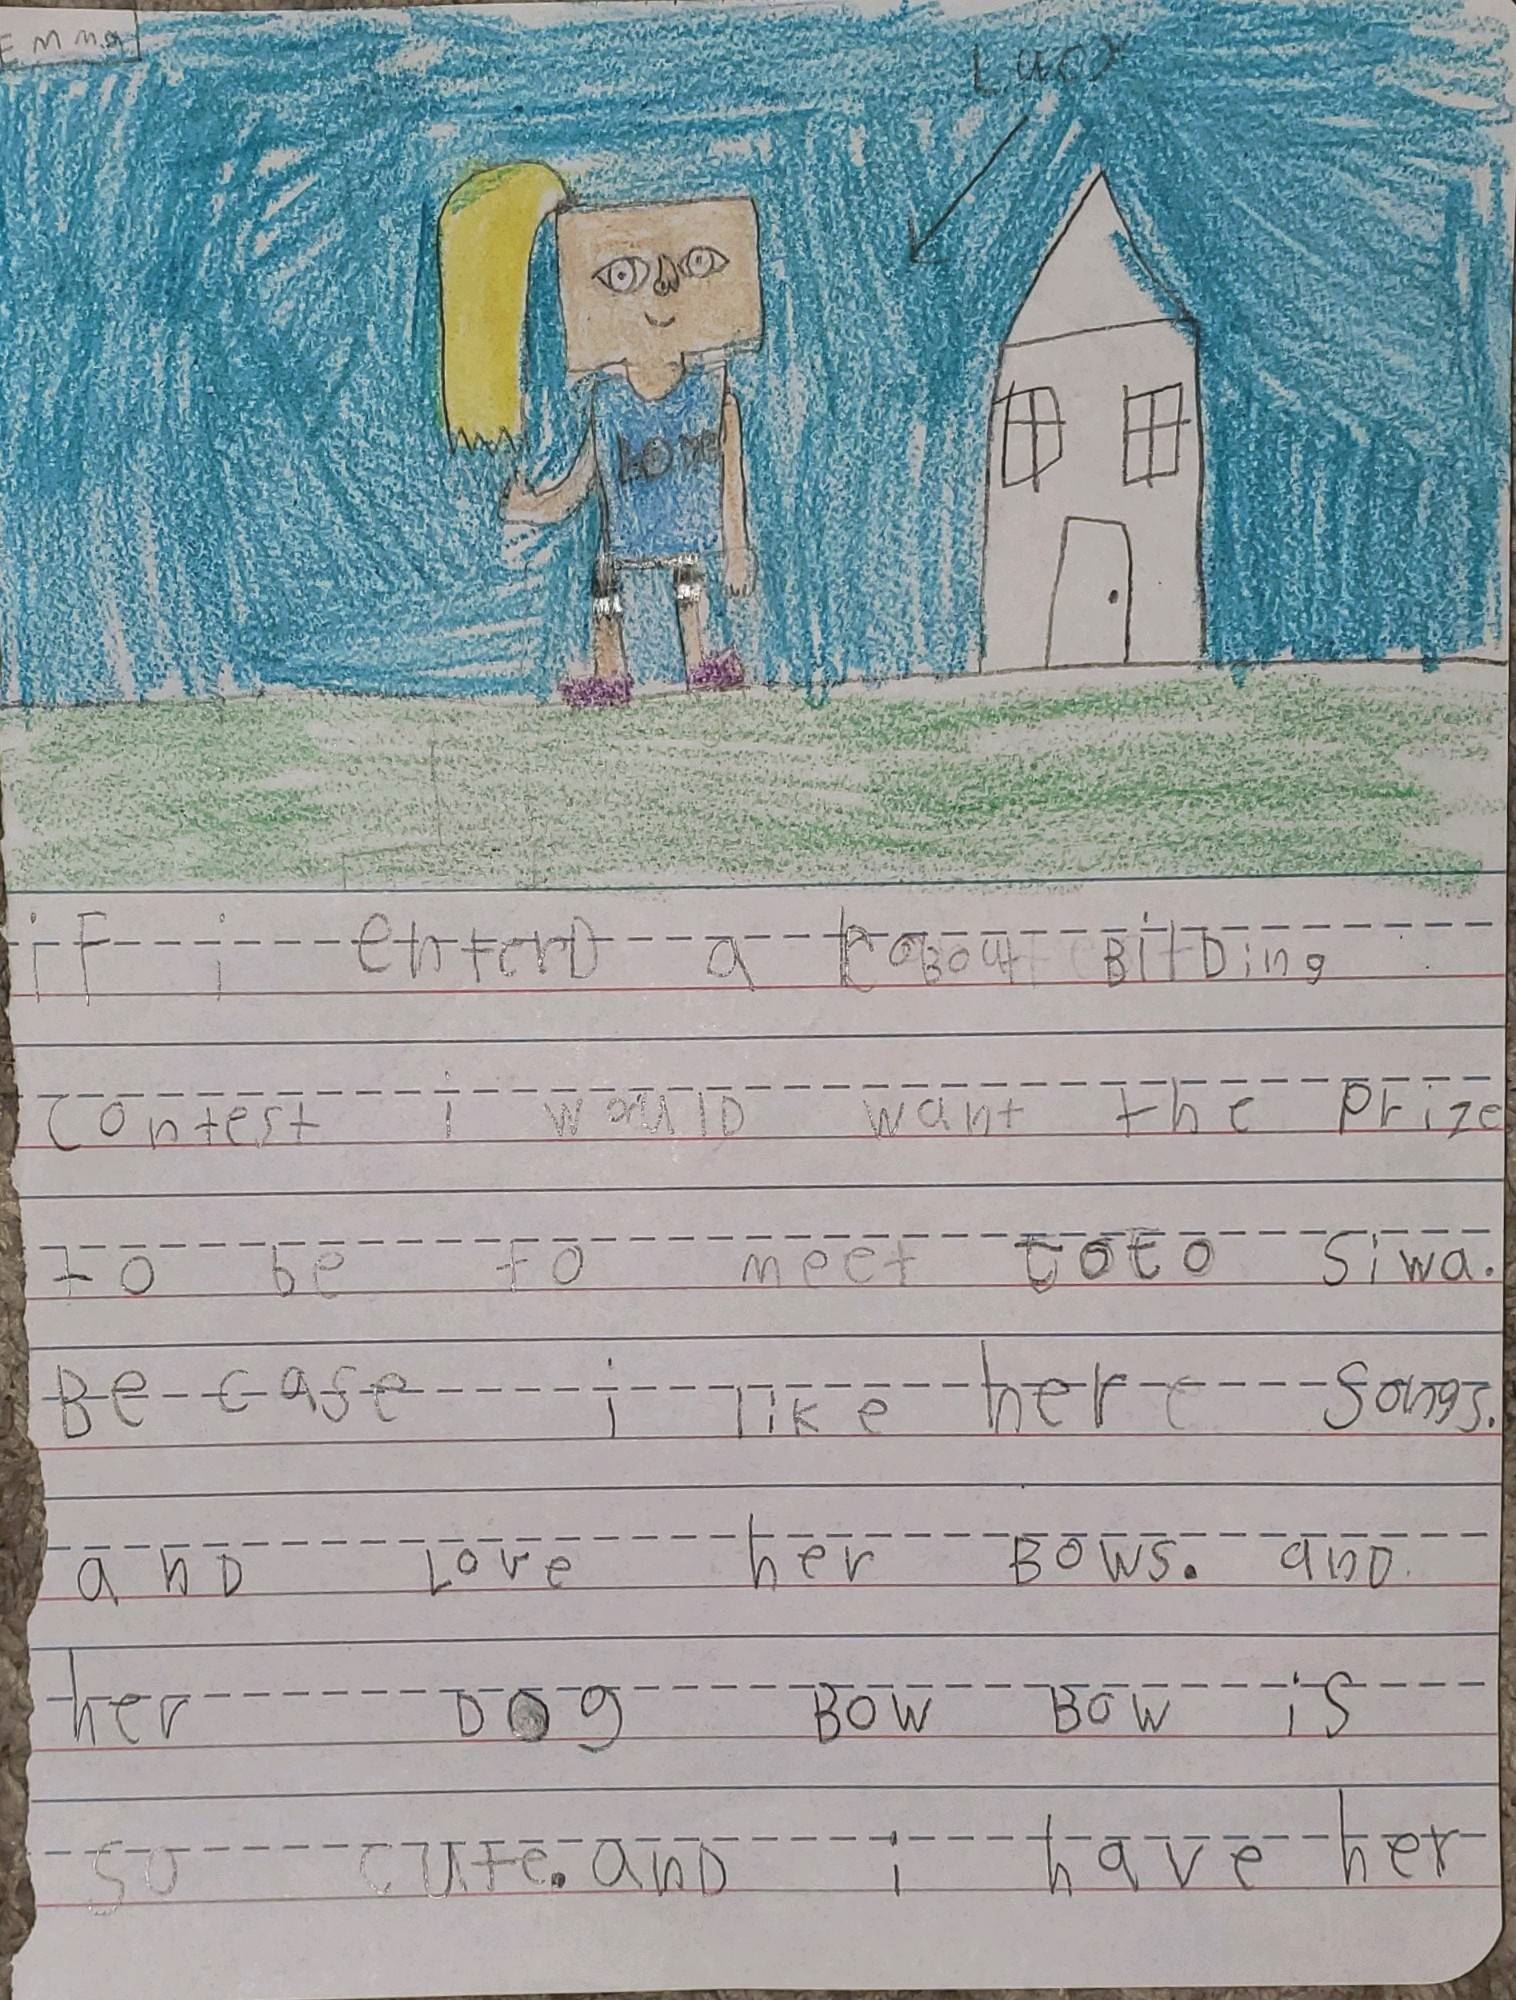 Emma
Lucy
if i enterD a roBout BilDing
contest i would want the prize
to be to meet toto Siwa.
Be case i like here Songs.
and Love her Bows. and
her Dog Bow Bow is
so cute. and i have her